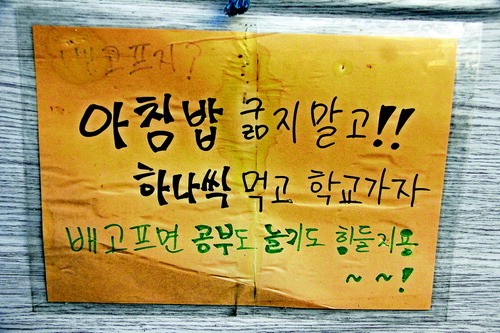 배고프지?
아침밥 굶지말고!!
하나씩 먹고 학교가자
배고프면 공부도 놀기도 힘들지용
~~!